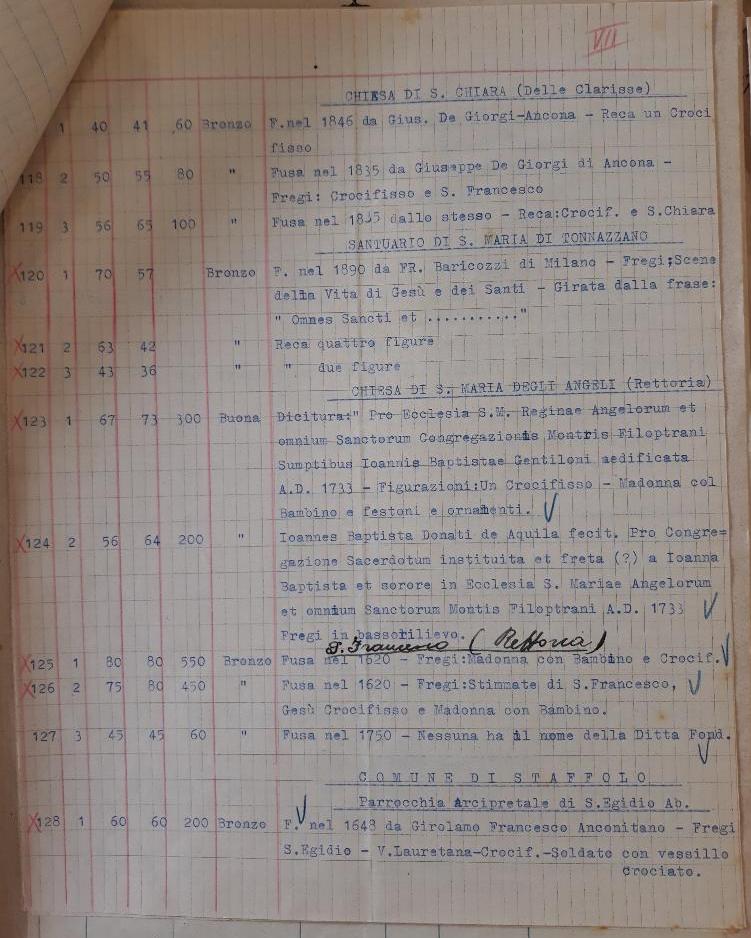 VII
CHIESA DI S. CHIARA (Delle Clarisse)
1 40 41 60 Bronzo F.nel 1846 da Gius. De Giorgi-Ancona - Reca un Croci
fisso
118 2 50 55 80 " Fusa nel 1835 da Giuseppe De Giorgi di Ancona -
Fregi: Crocifisso e S. Francesco
119 3 56 65 100 " Fusa nel 1835 dallo stesso - Reca:Crocif. e S.Chiara
SANTUARIO DI S. MARIA DI TONNAZZANO
X120 1 70 57 Bronzo F. nel 1890 da FR. Baricozzi di Milano - Fregi;Scene
della Vita di Gesù e dei Santi - Girata dalla frase:
" Omnes Sancti et ..........."
X121 2 63 42 " Reca quattro figure
X122 3 43 36 " " due figure
CHIESA DI S. MARIA DEGLI ANGELI (Rettoria)
X123 1 67 73 300 Buona Dicitura:" Pro Ecclesia S.M. Reginae Angelorum et
omnium Sanctorum Congregazionis Montris Filoptrani
Sumptibus Ioannis Baptistae Gentiloni aedificata
A.D. 1733 - Figurazioni:Un Crocifisso - Madonna col
Bambino e festoni e ornamenti. √
X124 2 56 64 200 " Ioannes Baptista Donati de Aquila fecit. Pro Congre=
gazione Sacerdotum instituita et freta (?) a Ioanna
Baptista et sorore in Ecclesia S. Mariae Angelorum
et omnium Sanctorum Montis Filoptrani A.D. 1733 √
Fregi in bassorilievo.
S. Francesco (Rettoria)
X125 1 80 80 550 Bronzo Fusa nel 1620 - Fregi:Madonna con Bambino e Crocif. √
X126 2 75 80 450 " Fusa nel 1620 - Fregi:Stimmate di S.Francesco, √
Gesù Crocifisso e Madonna con Bambino.
127 3 45 45 60 " Fusa nel 1750 - Nessuna ha il nome della Ditta Fond. √
COMUNE DI STAFFOLO
Parrocchia Arcipretale di S.Egidio Ab.
X128 1 60 60 200 Bronzo F. √ nel 1648 da Girolamo Francesco Anconitano - Fregi
S.Egidio - V.Lauretana-Crocif.-Soldato con vessillo
crociato.